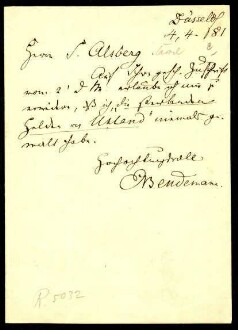 Düsseldf
4, 4. 181
Herrn S. Alsberg
Auf Ihre gefl. Zuschrift
vom 2' d Mts erlaube ich mir zu
erwidern, daß ich die sterbenden
Helden v. Uhland niemals ge,
malt habe.
Hochachtungsvoll
EBendemann.
R 5032